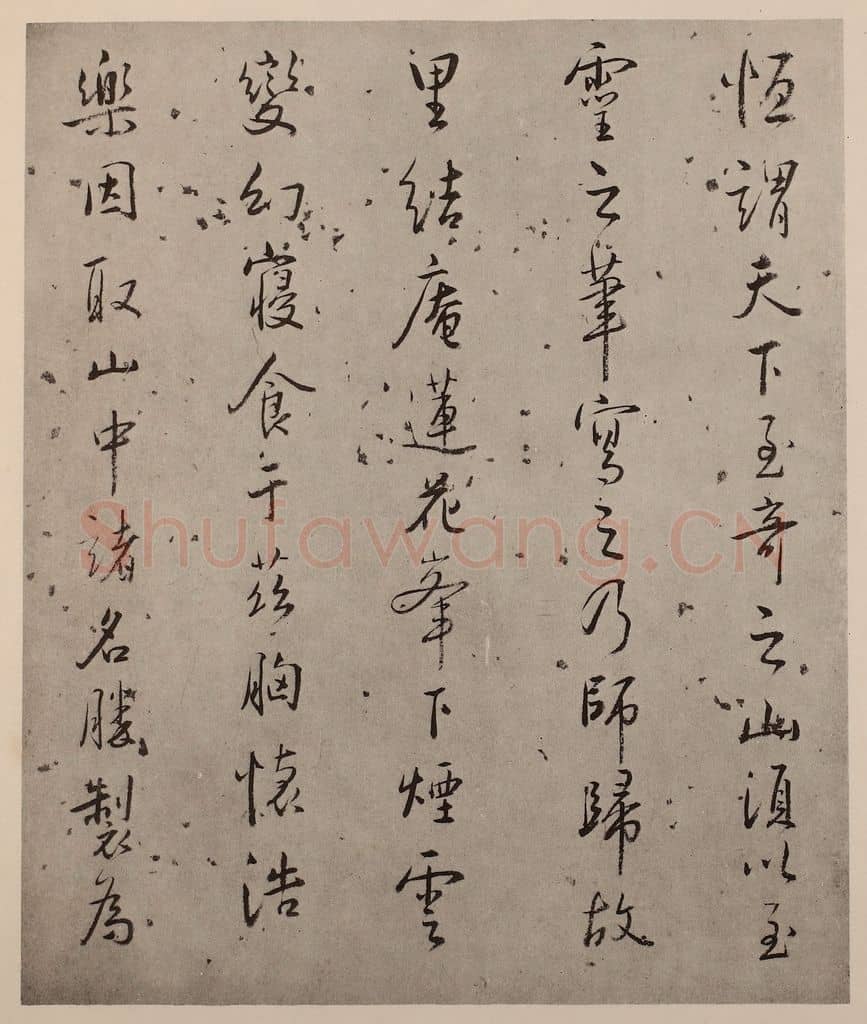 恒謂天下至奇之山須以至
靈之筆寫之乃師歸故
里結庵蓮花峯下煙雲
變幻寢食于茲胸懷浩
樂因取山中諸名勝製為
Shufawang.CN